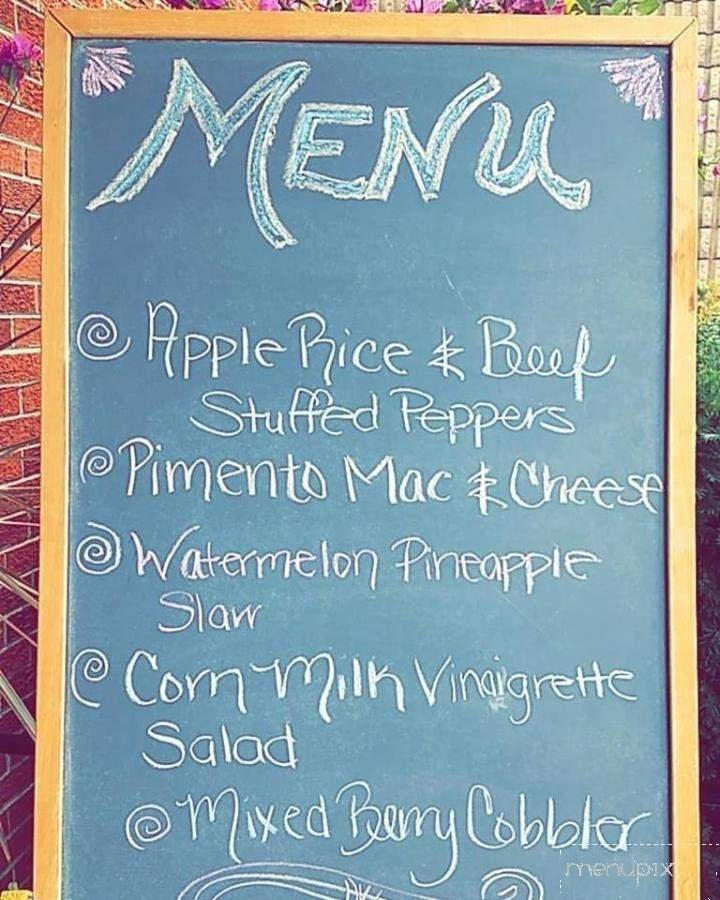 MENU
Apple Rice & Beef
Stuffed Peppers
Pimento Mac & Cheese
Watermelon Pineapple
Slaw
Corn Milk Vinaigrette
Salad
Mixed Berry Cobbler
menupix